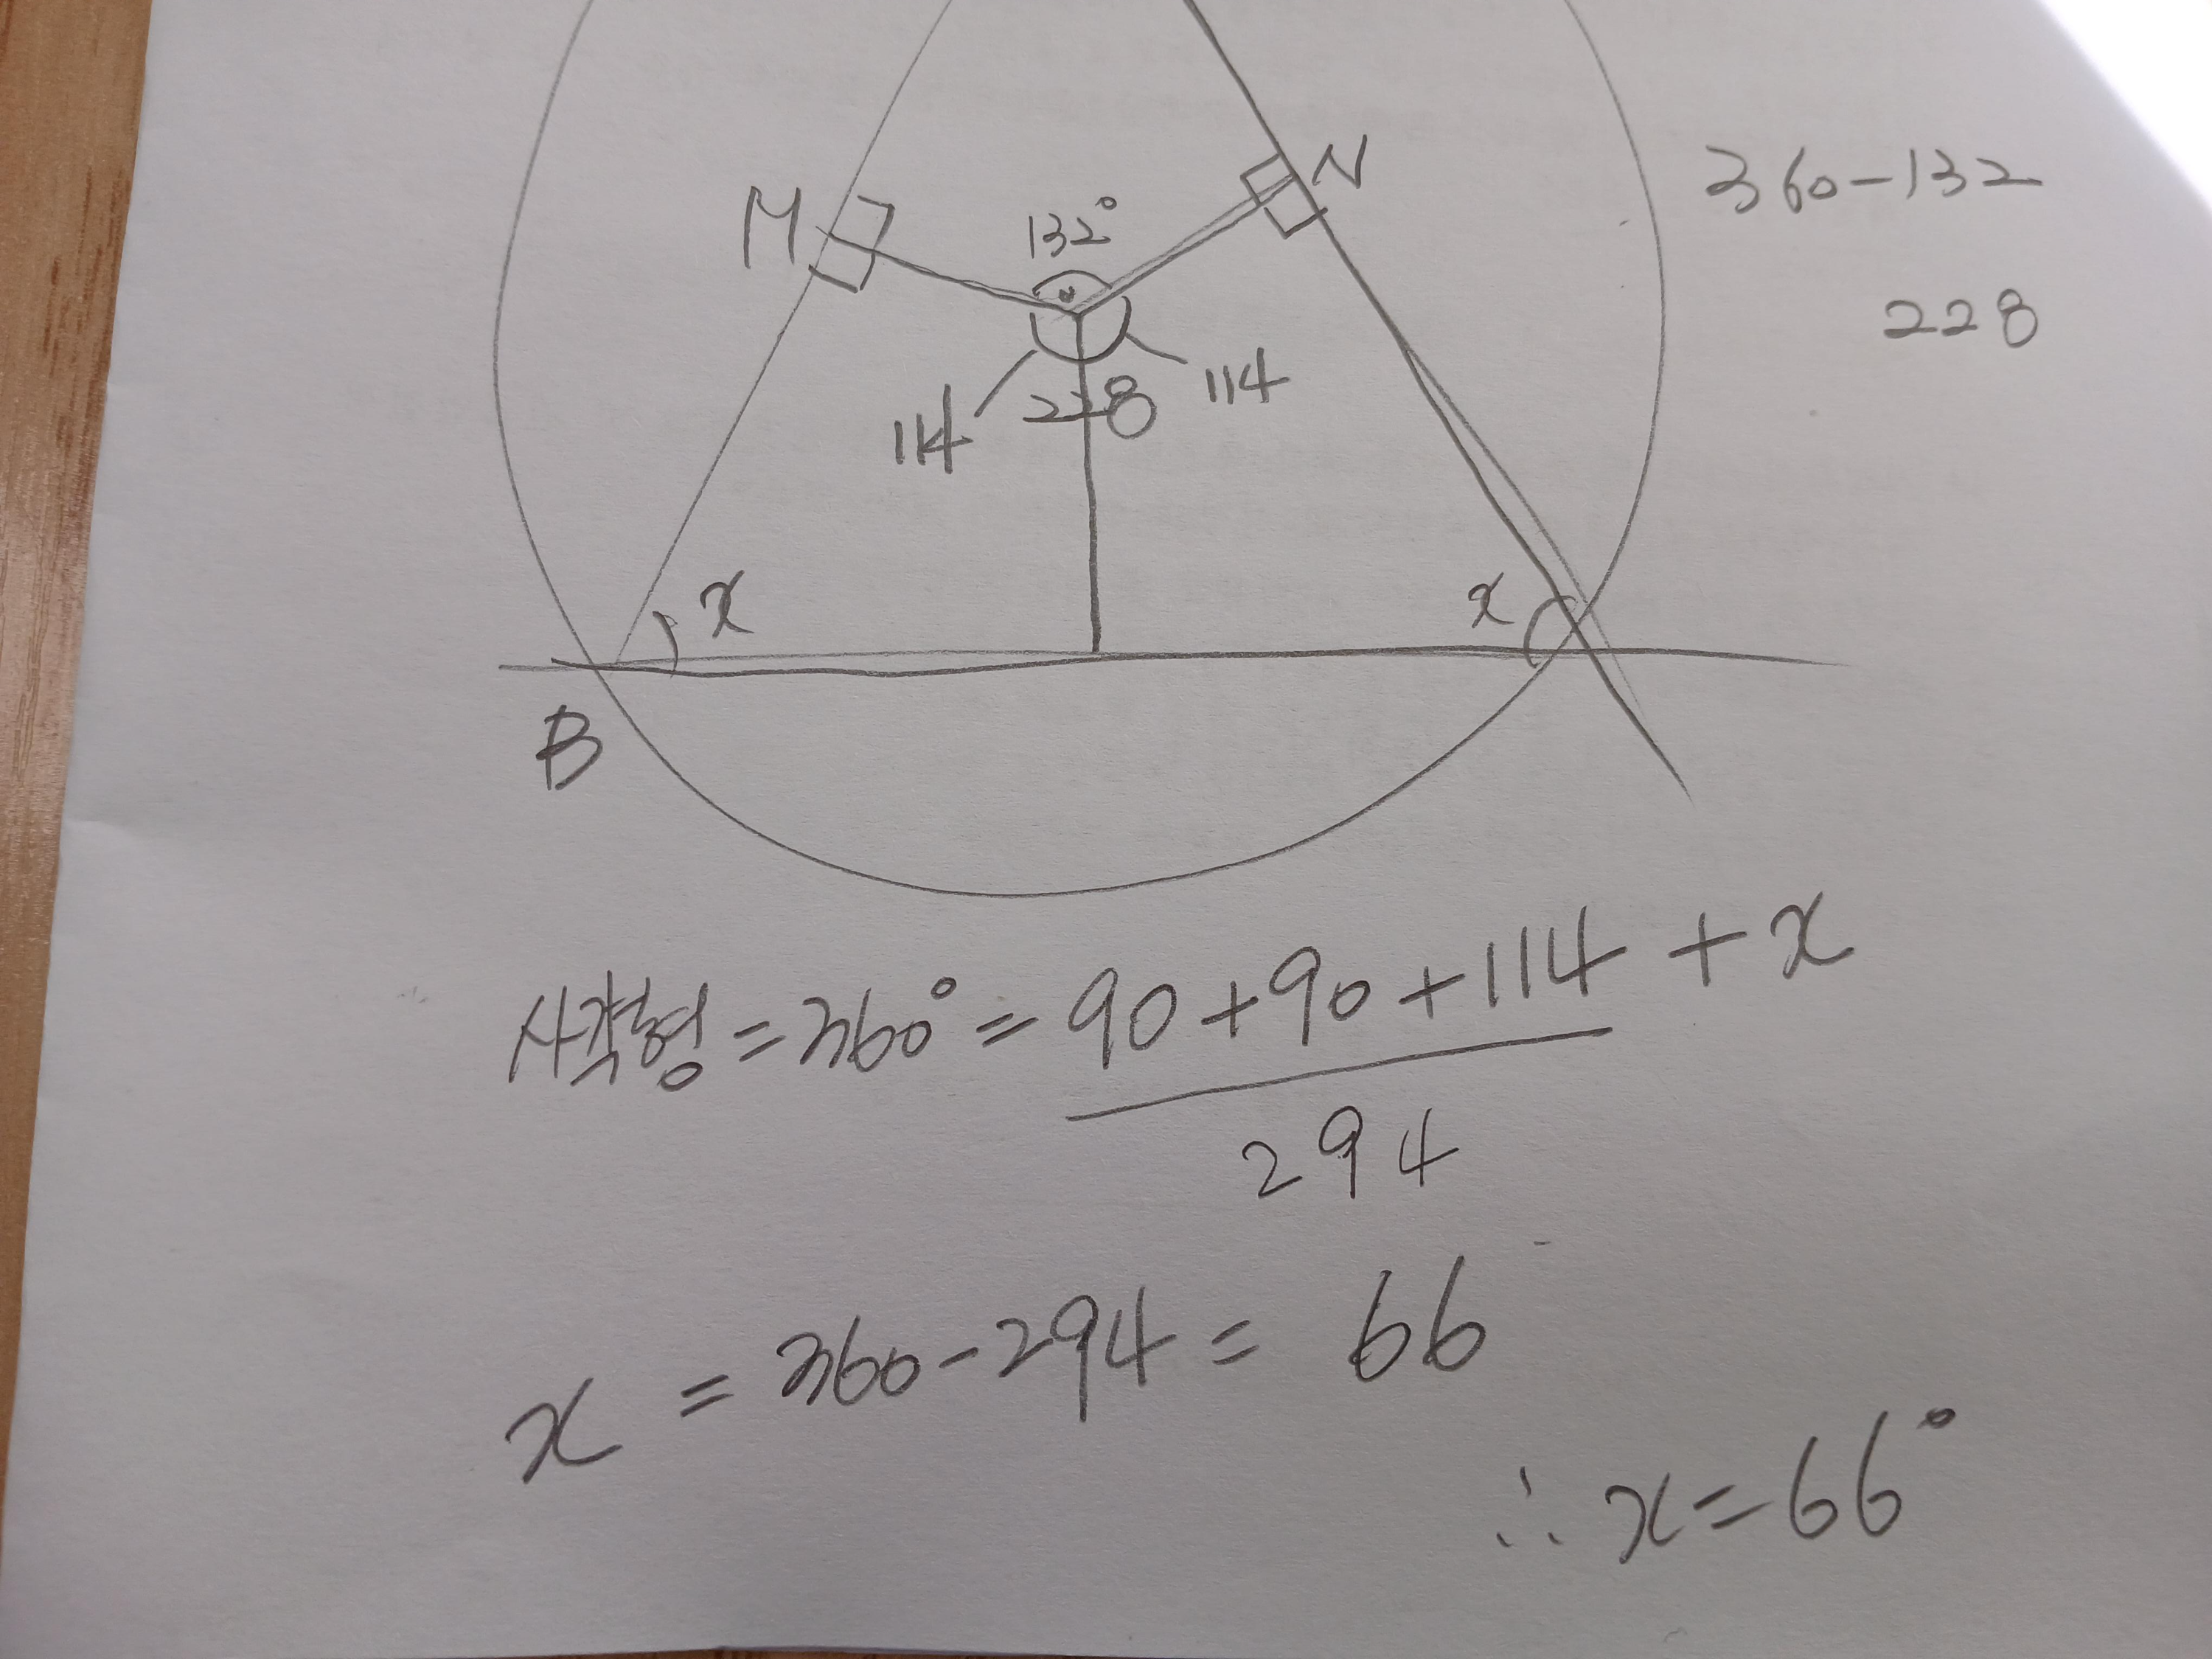 360-132
N
M
132°
228
114
228
114
x
x
B
사각형=360°=90+90+114+x
294
x=360-294=66
∴x=66°